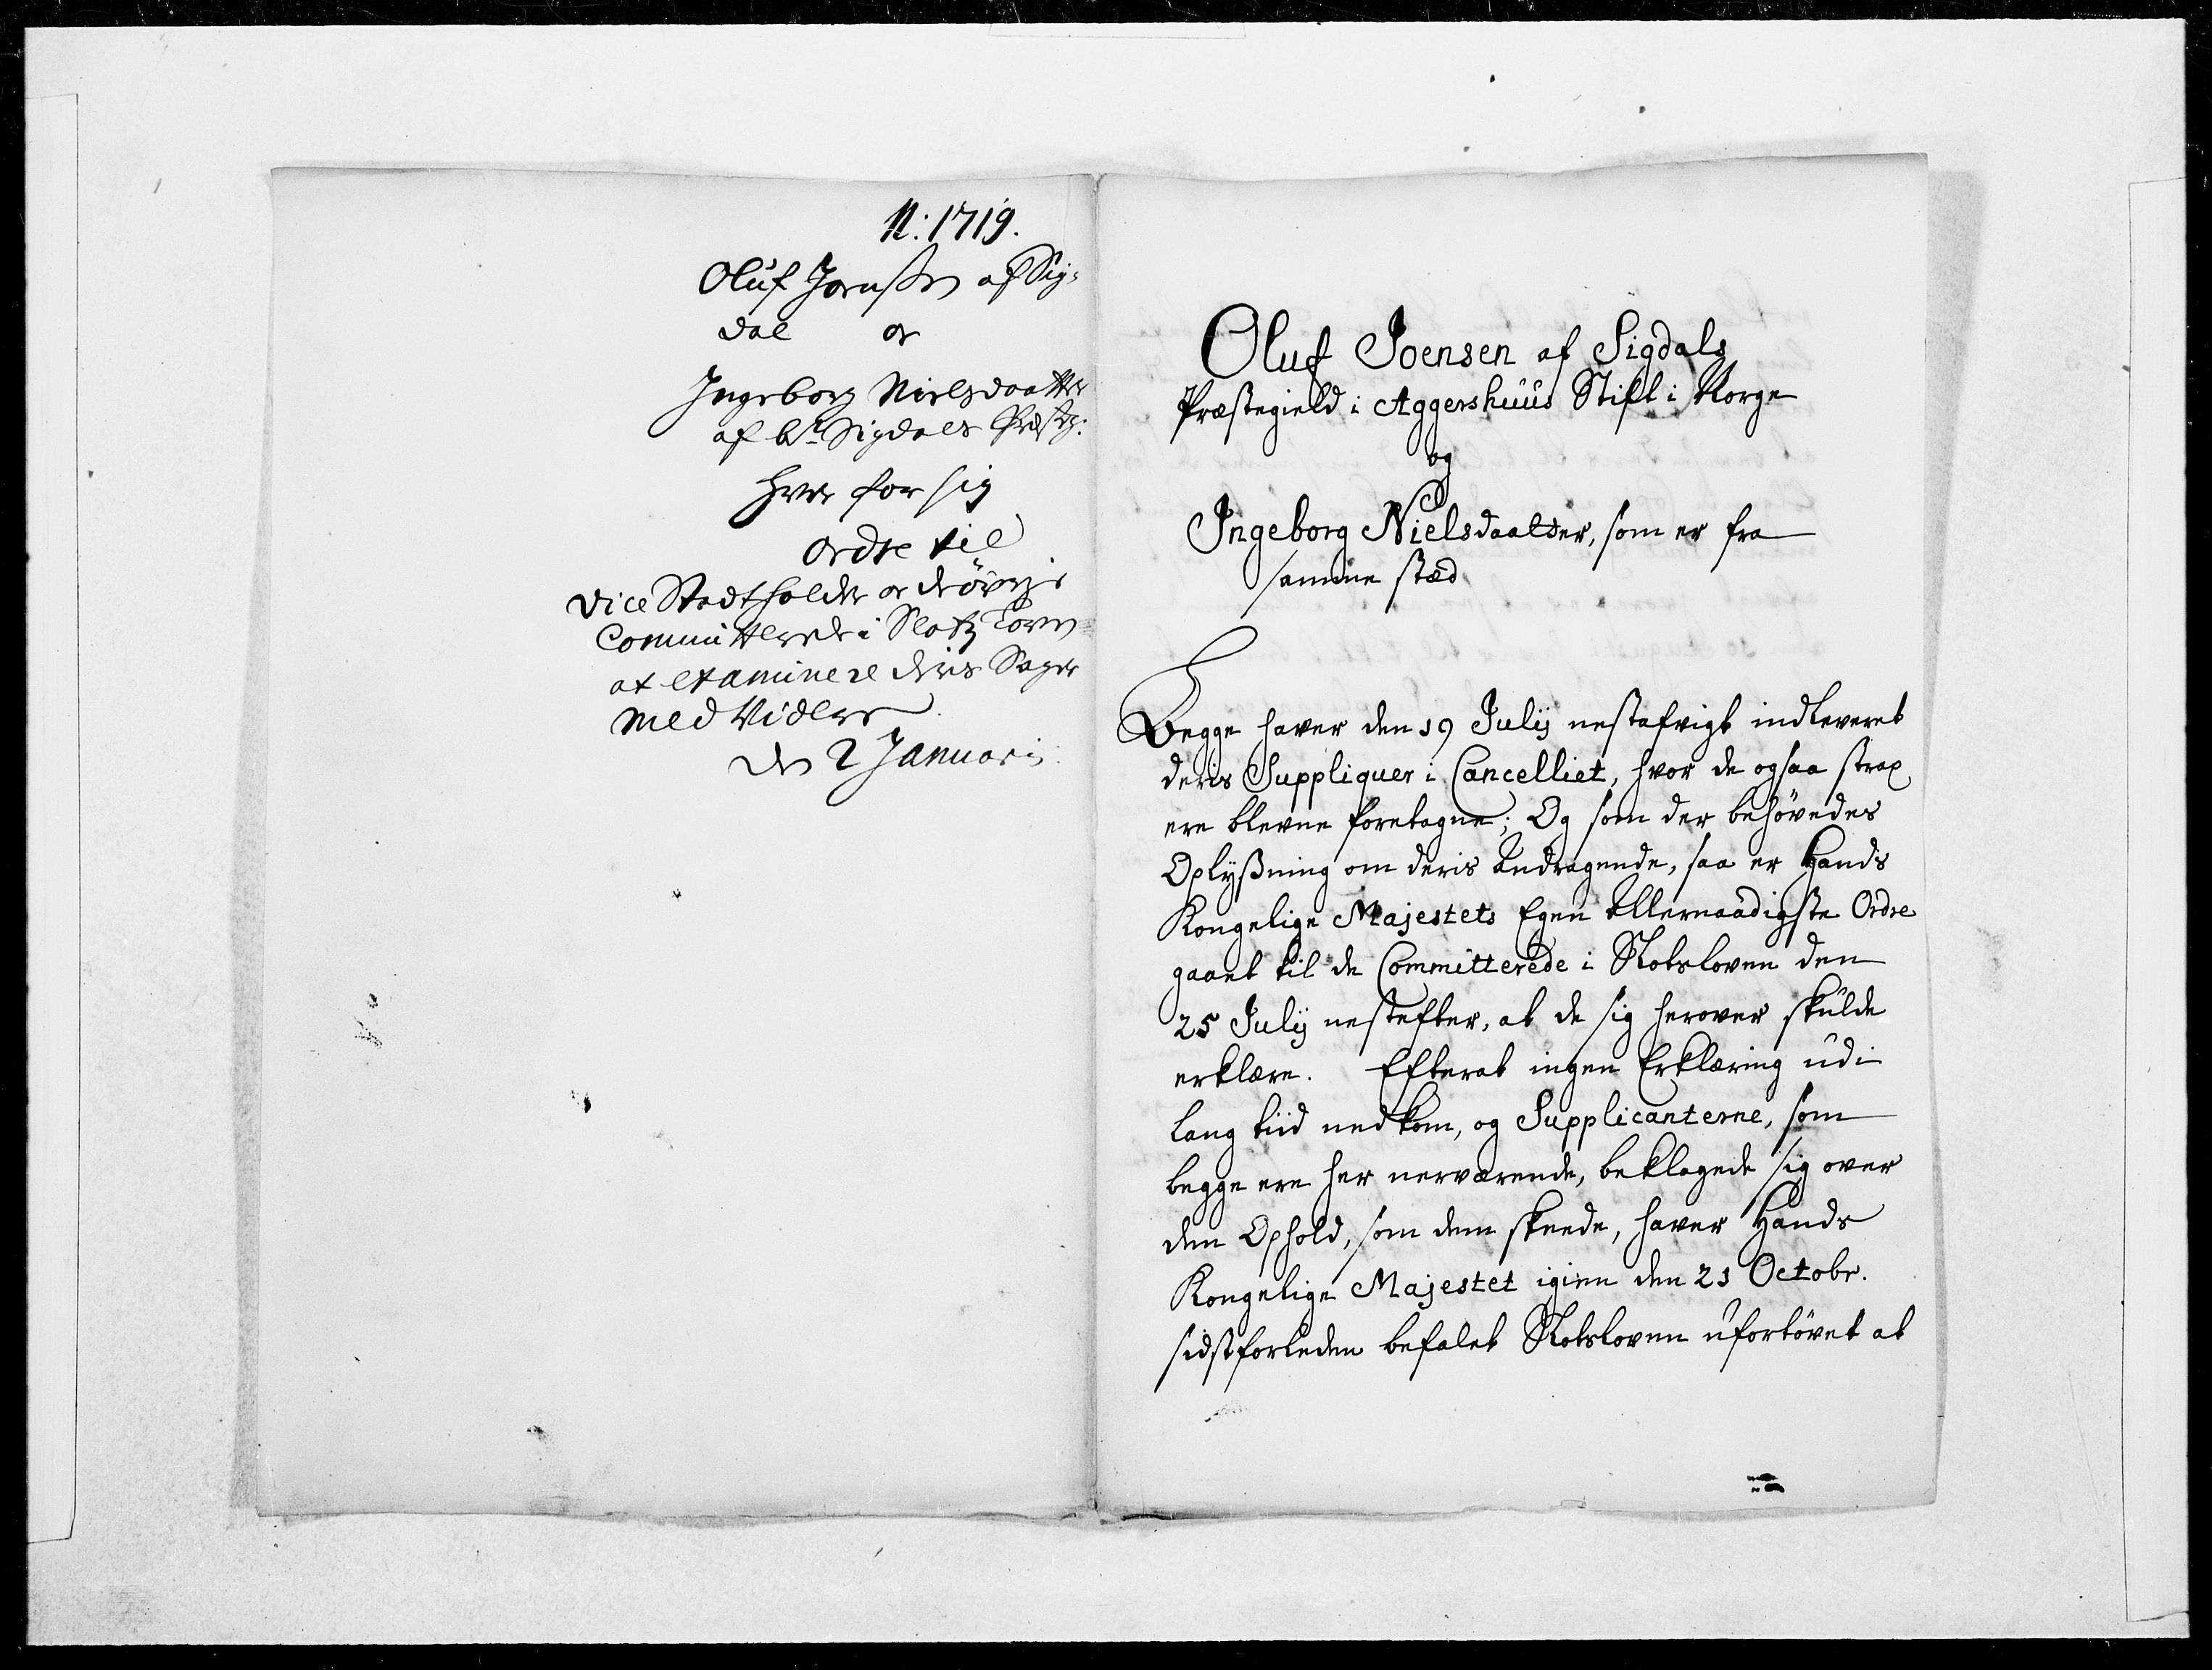 N: 1719.
Oluf Joensen af Sig-
dal og
Ingeborg Nielsdaatter
af bte Sigdals Præstg:
hver for sig
Ordre til
Vice Stadtholder og de øvrige
Committerede i Slotz Loven
at examinere deris Sager
med Videre
den 2 Januarii
Oluf Joensen af Sigdals
Præstegield i Aggershuus Stift i Norge
og
Ingeborg Nielsdaatter, som er fra
samme stæd
Begge haver den 19 Julij nestafvigt indleveret
deris Suppliquer i Cancelliet, hvor de ogsaa strax
ere blevne foretagne; Og som der behøvedes
Oplyßning om deris Andragende, saa er Hands
Kongelige Majestets Egen Allernaadigste Ordre
gaaet til de Committerede i Slotsloven den
25 Julij nestefter, at de sig herover skulde
erklære. Efterat ingen Erklæring udi
lang tiid nedkom, og Supplicanterne, som
begge ere her nerværende, beklagede sig over
den Ophold, som dem skeede, haver Hands
Kongelige Majestet igien den 21 Octobr.
sidstforleden befalet Slotsloven ufortøvet at